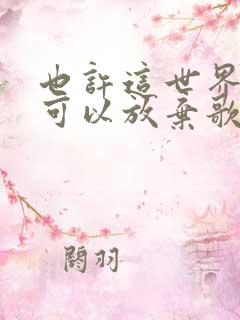 也許這世界
可以放棄歌
關羽